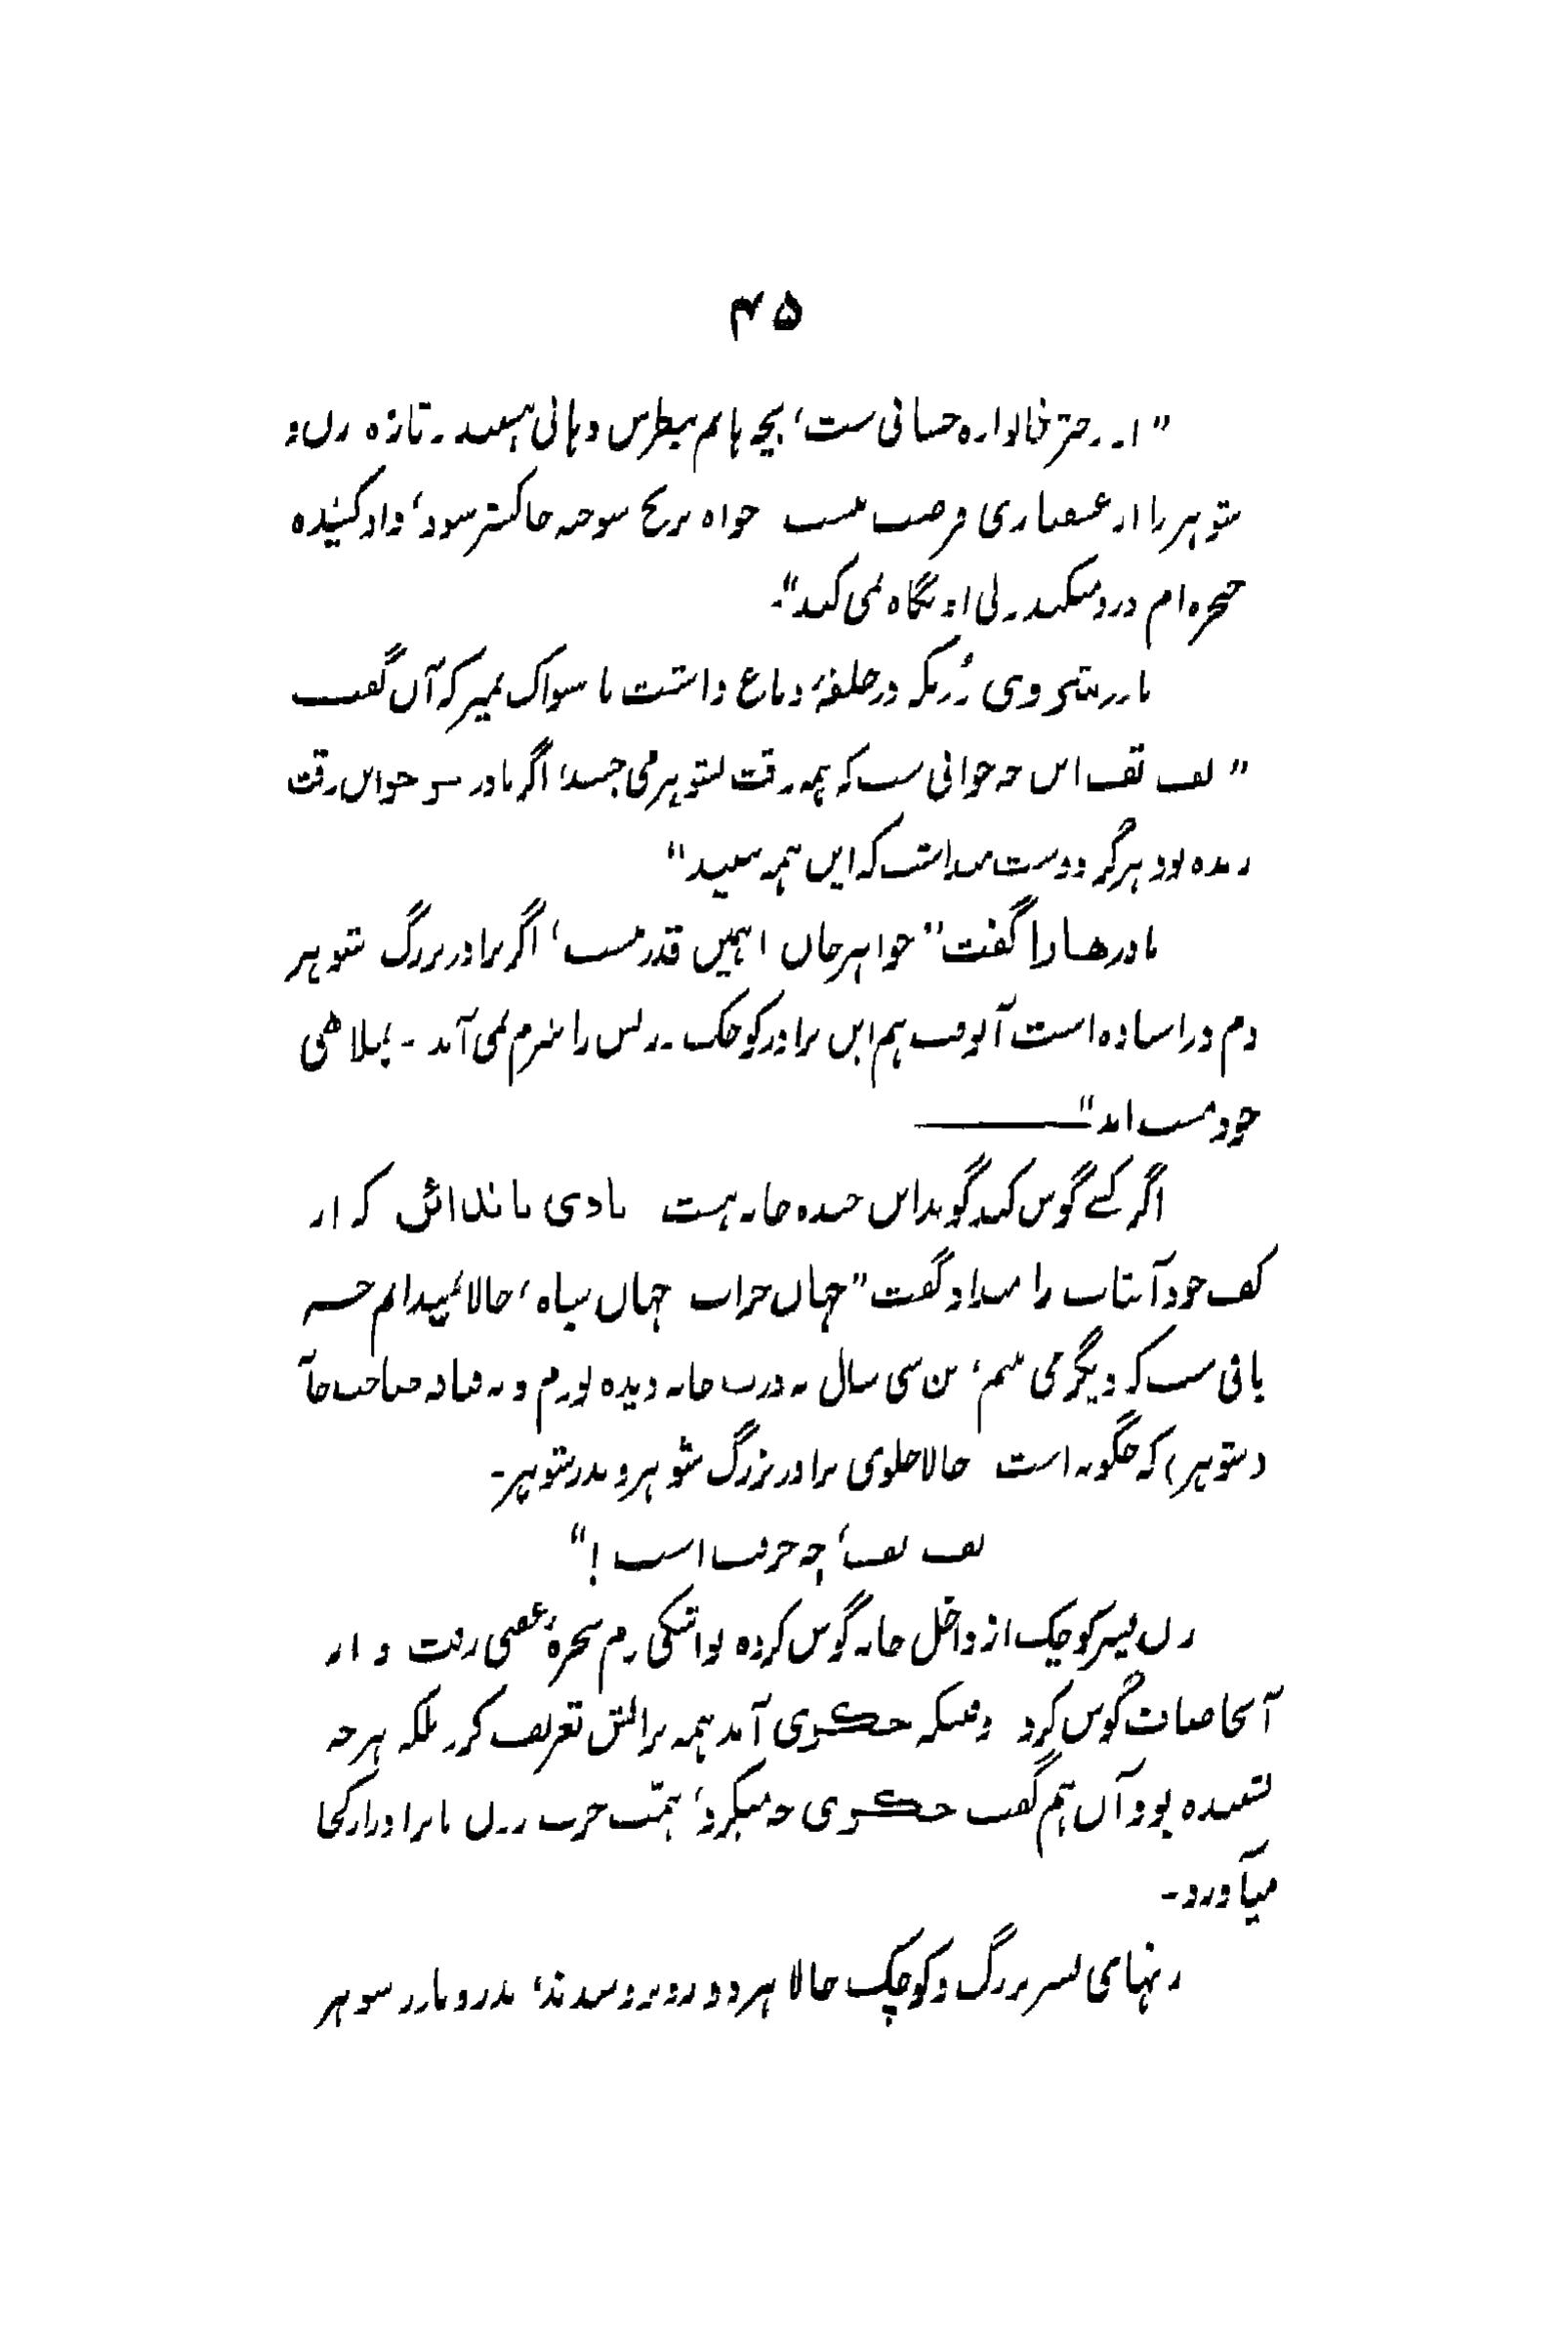 ۴۵
" از دختر خانواره حسابی ست، بچه ها هم بیطرس وهانی هستند ـ تازه زن و
شوهر را از عشقباری فرصت نیست خواه برنج سوخته خاکستر سود، داد کشیده
حنجره ام درد میکند ـ لی او نگاه نمی کند"ـ
مادر شوهر وی زریکه در حلقهٔ دماغ داشت با سواک خمیر که آن گفت
" تف تف این چه جوانی ست که همه وقت بشوهر می چسبد، اگر مادر سر جوانی رفت
زنده بود هرگز دوست میداشت که این همه ببیند"
مادر گفت" خواهر جان ! همین قدر نیست، اگر برادر بزرگ شوهر
دم در استاده است آنوقت هم این برادر کوچک ـ زنش را شرم نمی آمد ـ
خود مست اند"
اگر کسے گوش کند گوید این خنده خانه هست که از
کف خود آفتاب را میداد گفت" جهان خراب جهان سیاه، حالا نمیدانم چه
باقی ست که دیگر می بینم، من سی سال نه درب خانه دیده بودم و نه قیافه صاحب خانه
(شوهر) که چگونه است حالا جلوی برادر بزرگ شوهر و پدر شوهر ـ
تف تف، چه حرف است !"
زن پسر کوچک از داخل خانه گوش کرده بواشکی دم حجرهٔ عقبی رفت و از
آنجا صاف گوش کرد وقتیکه آمد همه برایش تعریف کرد بلکه هر چه
نشنیده بود آن هم گفت چه میکرد، همّت حرف زدن با برادر از کجا
میآورد ـ
زنهای پسر بزرگ و کوچک حالا هر دو روبرو شدند، پدر و مادر شوهر